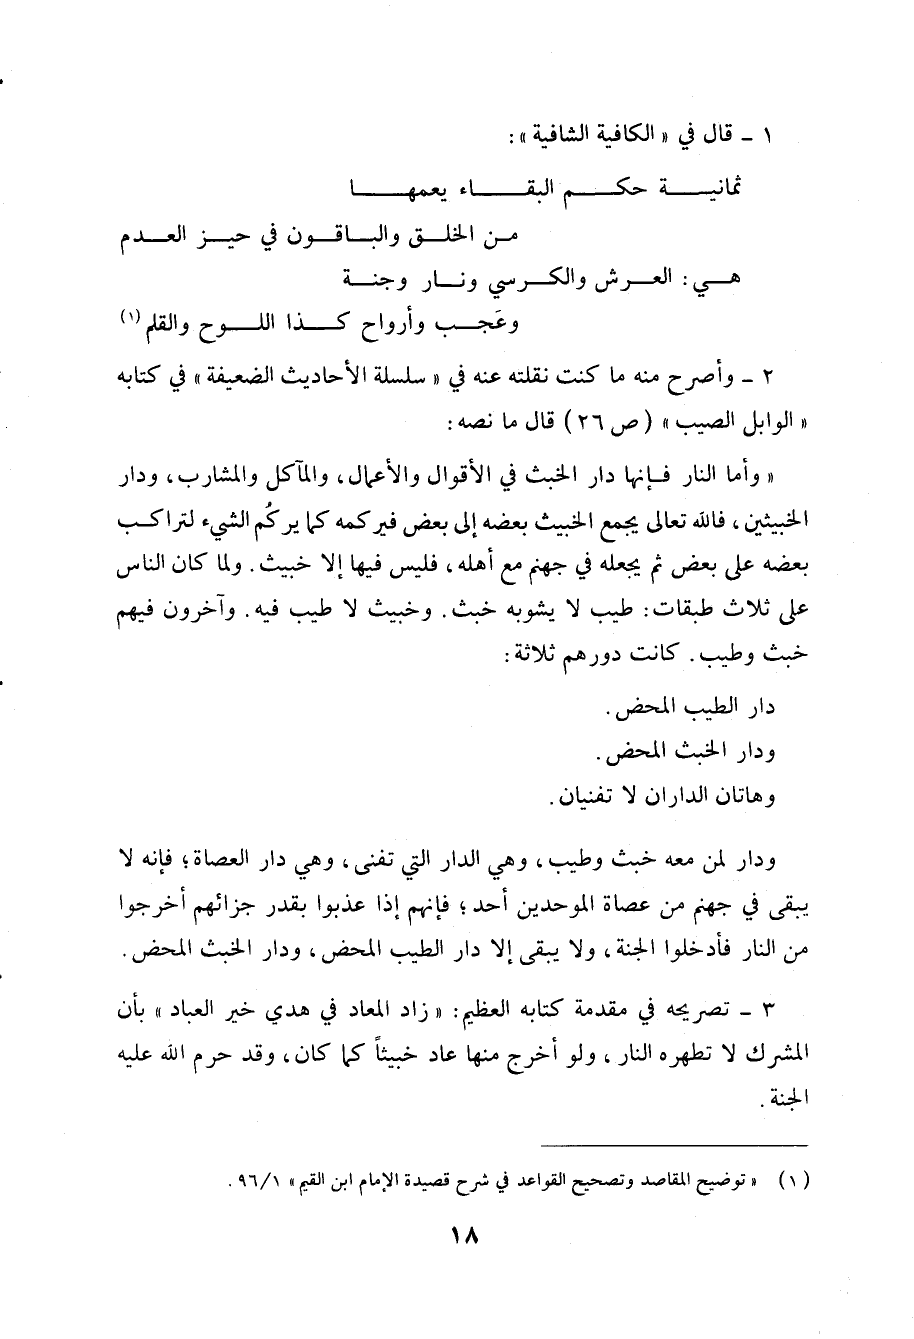 ١ - قال في « الكافية الشافية » :
ثمانيـــة حكـــم البقـــاء يعمهـــا
مـن الخلـق والبـاقـون في حيـز العـدم
هـي : العـرش والكـرسي ونـار وجنـة
وعَجـب وأرواح كـذا اللـوح والقلم (١)
٢ - وأصرح منه ما كنت نقلته عنه في « سلسلة الأحاديث الضعيفة » في كتابه
« الوابل الصيب » ( ص ٢٦ ) قال ما نصه :
« وأما النار فـإنها دار الخبث في الأقوال والأعمال ، والمآكل والمشارب ، ودار
الخبيثين ، فالله تعالى يجمع الخبيث بعضه إلى بعض فيركمه كما يركُم الشيء لتراكب
بعضه على بعض ثم يجعله في جهنم مع أهله ، فليس فيها إلا خبيث . ولما كان الناس
على ثلاث طبقات : طيب لا يشوبه خبث . وخبيث لا طيب فيه . وآخرون فيهم
خبث وطيب . كانت دورهم ثلاثة :
دار الطيب المحض .
ودار الخبث المحض .
وهاتان الداران لا تفنيان .
ودار لمن معه خبث وطيب ، وهي الدار التي تفنى ، وهي دار العصاة ؛ فإنه لا
يبقى في جهنم من عصاة الموحدين أحد ؛ فإنهم إذا عذبوا بقدر جزائهم أخرجوا
من النار فأدخلوا الجنة ، ولا يبقى إلا دار الطيب المحض ، ودار الخبث المحض .
٣ - تصريحه في مقدمة كتابه العظيم : « زاد المعاد في هدي خير العباد » بأن
المشرك لا تطهره النار ، ولو أخرج منها عاد خبيثاً كما كان ، وقد حرم الله عليه
الجنة .
( ١ ) « توضيح المقاصد وتصحيح القواعد في شرح قصيدة الإمام ابن القيم » ٩٦/١ .
١٨